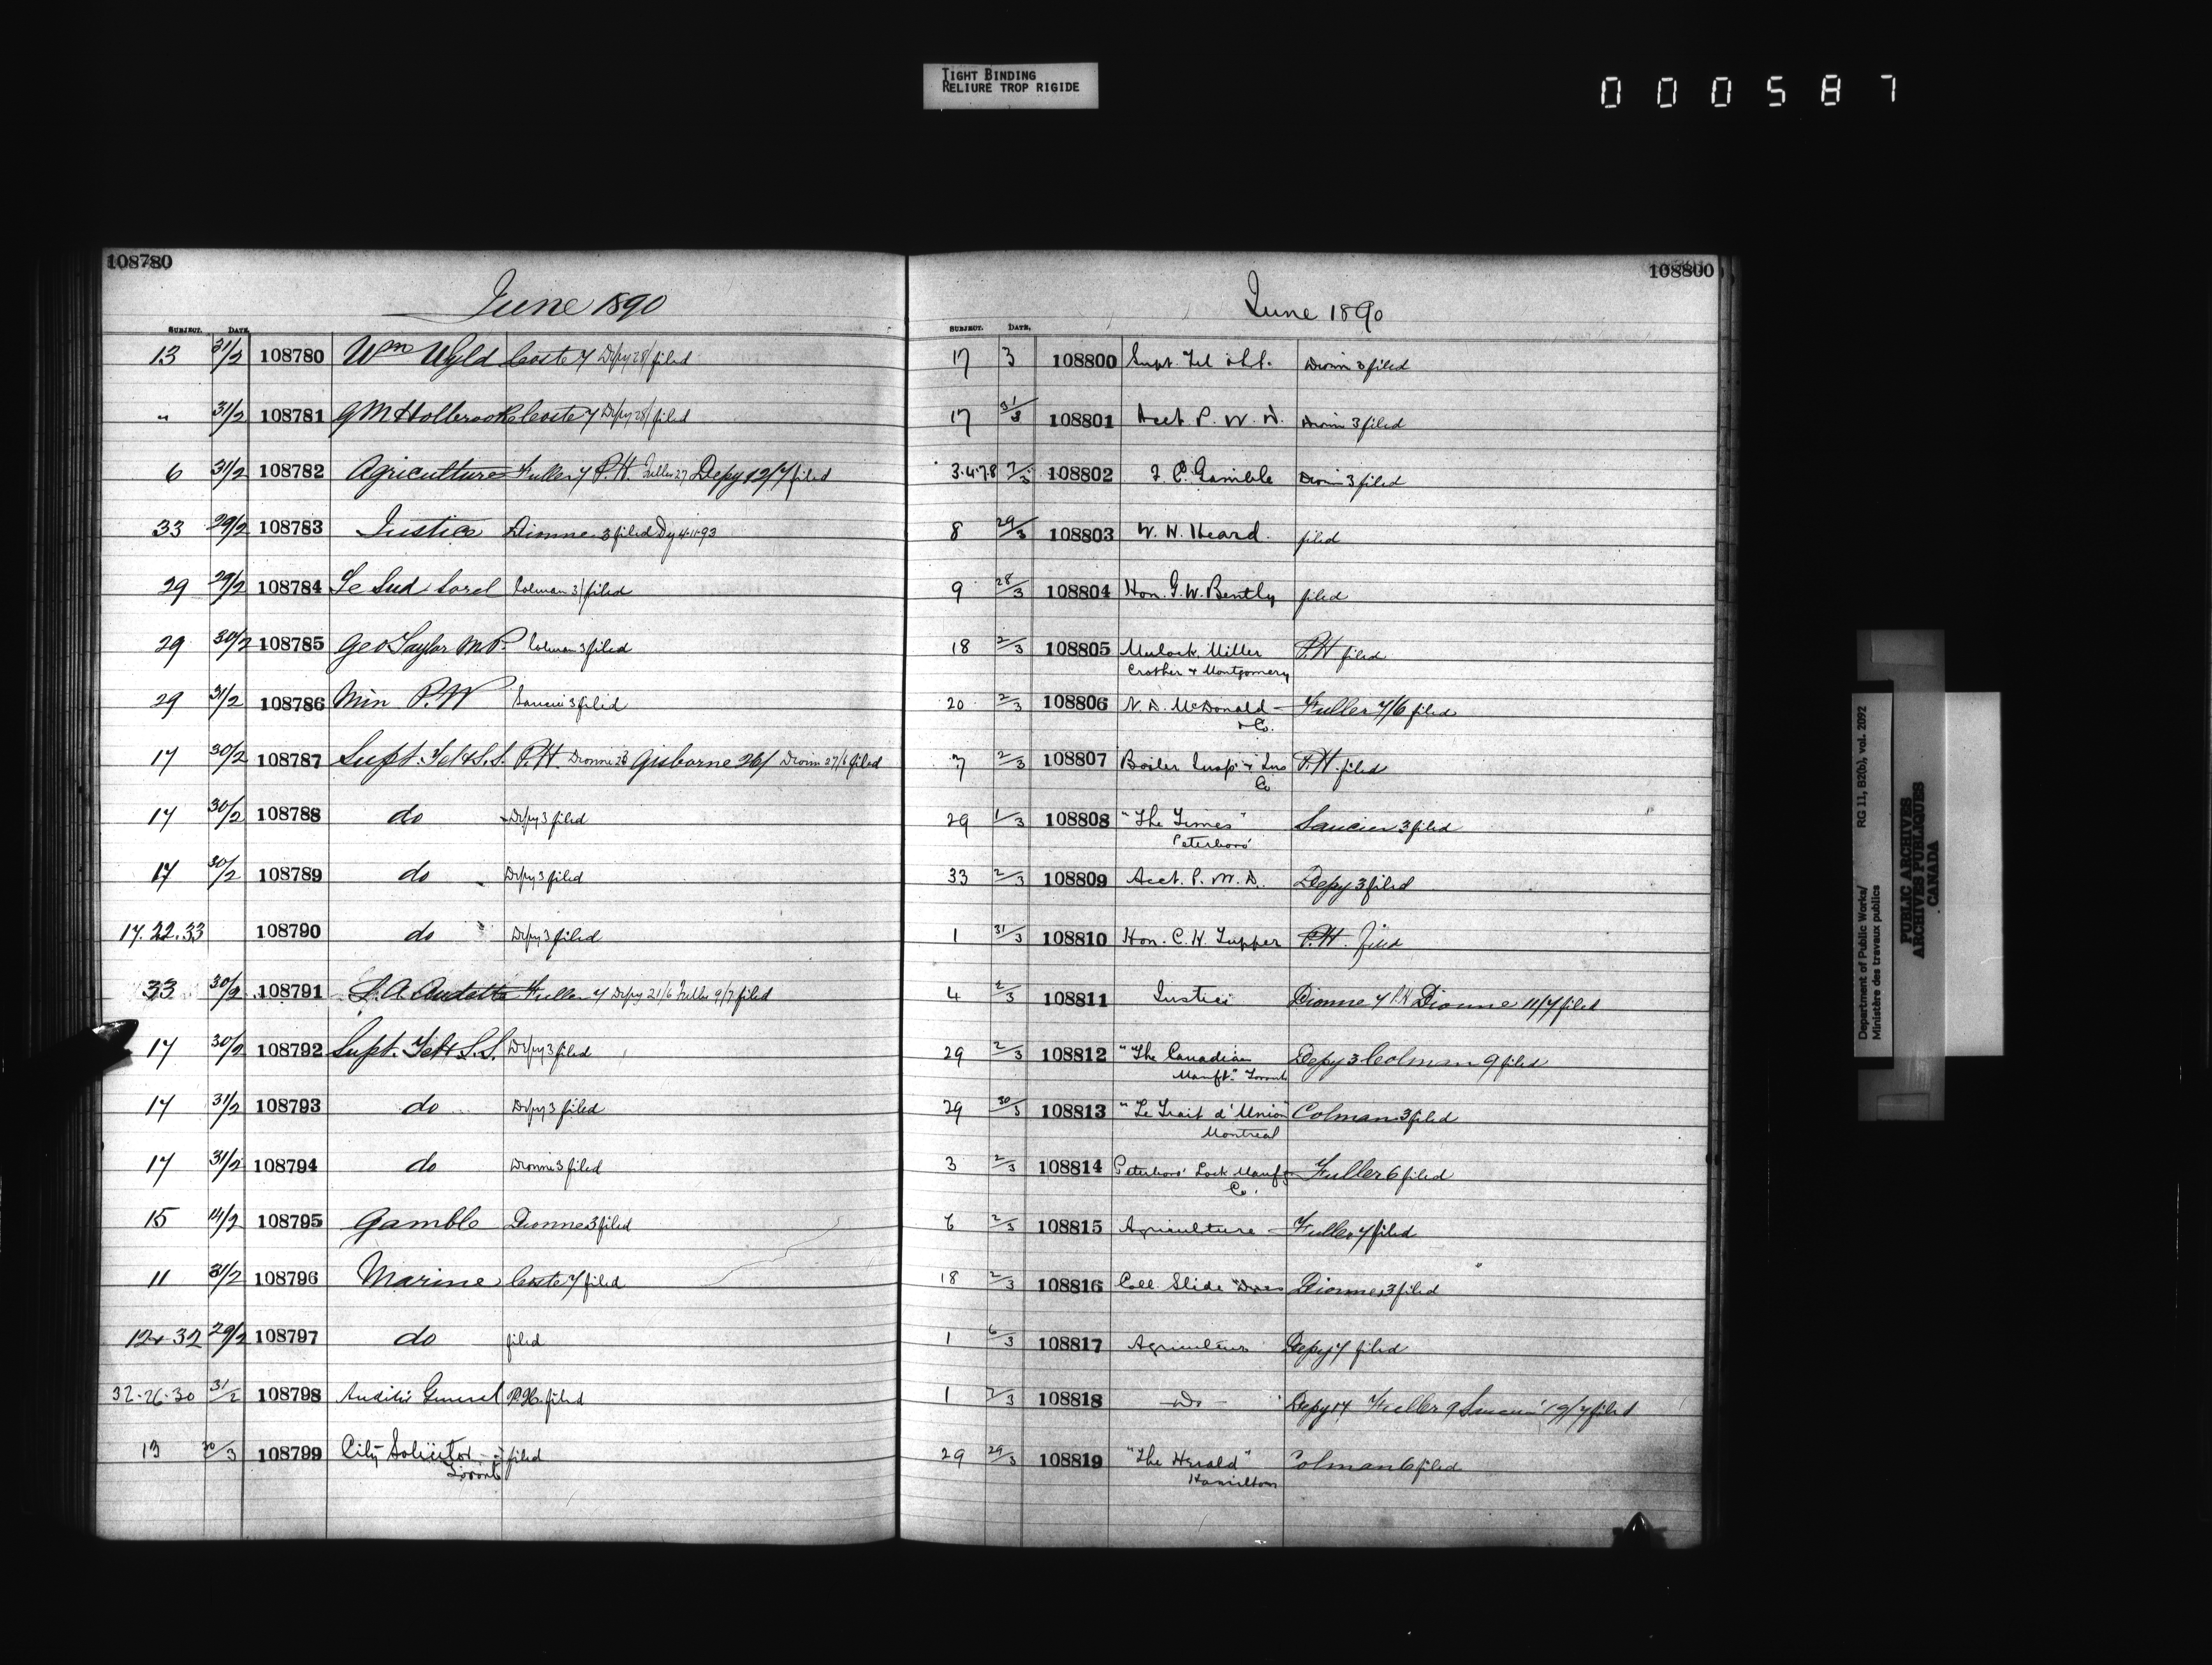 TIGHT BINDING
RELIURE TROP RIGIDE
000587
108780
June 1890
SUBJECT. DATE.
13 31/2 108780 Wm Wyld Coste 7 Depy 28/ filed
" 31/2 108781 G M Holbrooke Coste 7 Depy 28/ filed
6 31/2 108782 Agriculture Fuller 7 P.H. Fuller 27 Depy 12/7 filed
33 29/2 108783 Justice Dionne 3 filed Dy 4-11-93
29 29/2 108784 Le Sud Sorel Colman 3/ filed
29 30/2 108785 Geo Taylor M.P. Colman 3 filed
29 31/2 108786 Min P.W Saucier 3 filed
17 30/2 108787 Supt. Tel & S.S. P.H. Dionne 23 Gisborne 26/ Dionn 27/6 filed
17 30/2 108788 do Depy 3 filed
17 30/2 108789 do Depy 3 filed
17.22.33 108790 do Depy 3 filed
33 30/2 108791 L. A. Audette Fuller 7 Depy 21/6 Fuller 9/7 filed
17 30/2 108792 Supt. Tel & S.S. Depy 3 filed
17 31/2 108793 do Depy 3 filed
17 31/2 108794 do Dionne 3 filed
15 14/2 108795 Gamble Dionne 3 filed
11 31/2 108796 Marine Coste 7 filed
12 & 32 29/2 108797 do filed
32-26-30 31/2 108798 Auditor General P.H. filed
13 30/3 108799 City Solicitor filed
Toronto
108800
June 1890
SUBJECT. DATE.
17 3 108800 Supt. Tel Dionn 3 filed
17 31/3 108801 Acct. P. W. D. Dionn 3 filed
3.4.7.8 2/3 108802 F. C. Gamble Dionn 3 filed
8 29/3 108803 W. H. Heard. filed
9 28/3 108804 Hon. G. W. Bently filed
18 2/3 108805 Mulock Miller P.H filed
Crother & Montgomery
20 2/3 108806 N. D. McDonald Fuller 7/6 filed
& Co.
7 2/3 108807 Boiler Insp & Ins P.H. filed
Co
29 1/3 108808 "The Times" Saucier 3 filed
Peterboro'
33 2/3 108809 Acct. P. W. D. Depy 3 filed
1 31/3 108810 Hon. C. H. Tupper P.H. filed
4 2/3 108811 Justice Dionne 7 P.H Dionne 11/7 filed
29 2/3 108812 "The Canadian Depy 3 Colman 9 filed
Manfr." Toronto
29 30/3 108813 "Le Trait d'Union" Colman 3 filed
Montreal
3 2/3 108814 Peterboro' Lock Manfg Fuller 6 filed
Co.
6 2/3 108815 Agriculture Fuller 7 filed
18 2/3 108816 Coll Slide Dues Dionne 3 filed
1 6/3 108817 Agriculture Depy 7 filed
1 2/3 108818 Do Depy 14 Fuller 9 Saucier 19/7 filed
29 29/3 108819 "The Herald" Colman 6 filed
Hamilton
Department of Public Works/ RG 11, B2(b), vol. 2092
Ministère des travaux publics
PUBLIC ARCHIVES
ARCHIVES PUBLIQUES
CANADA